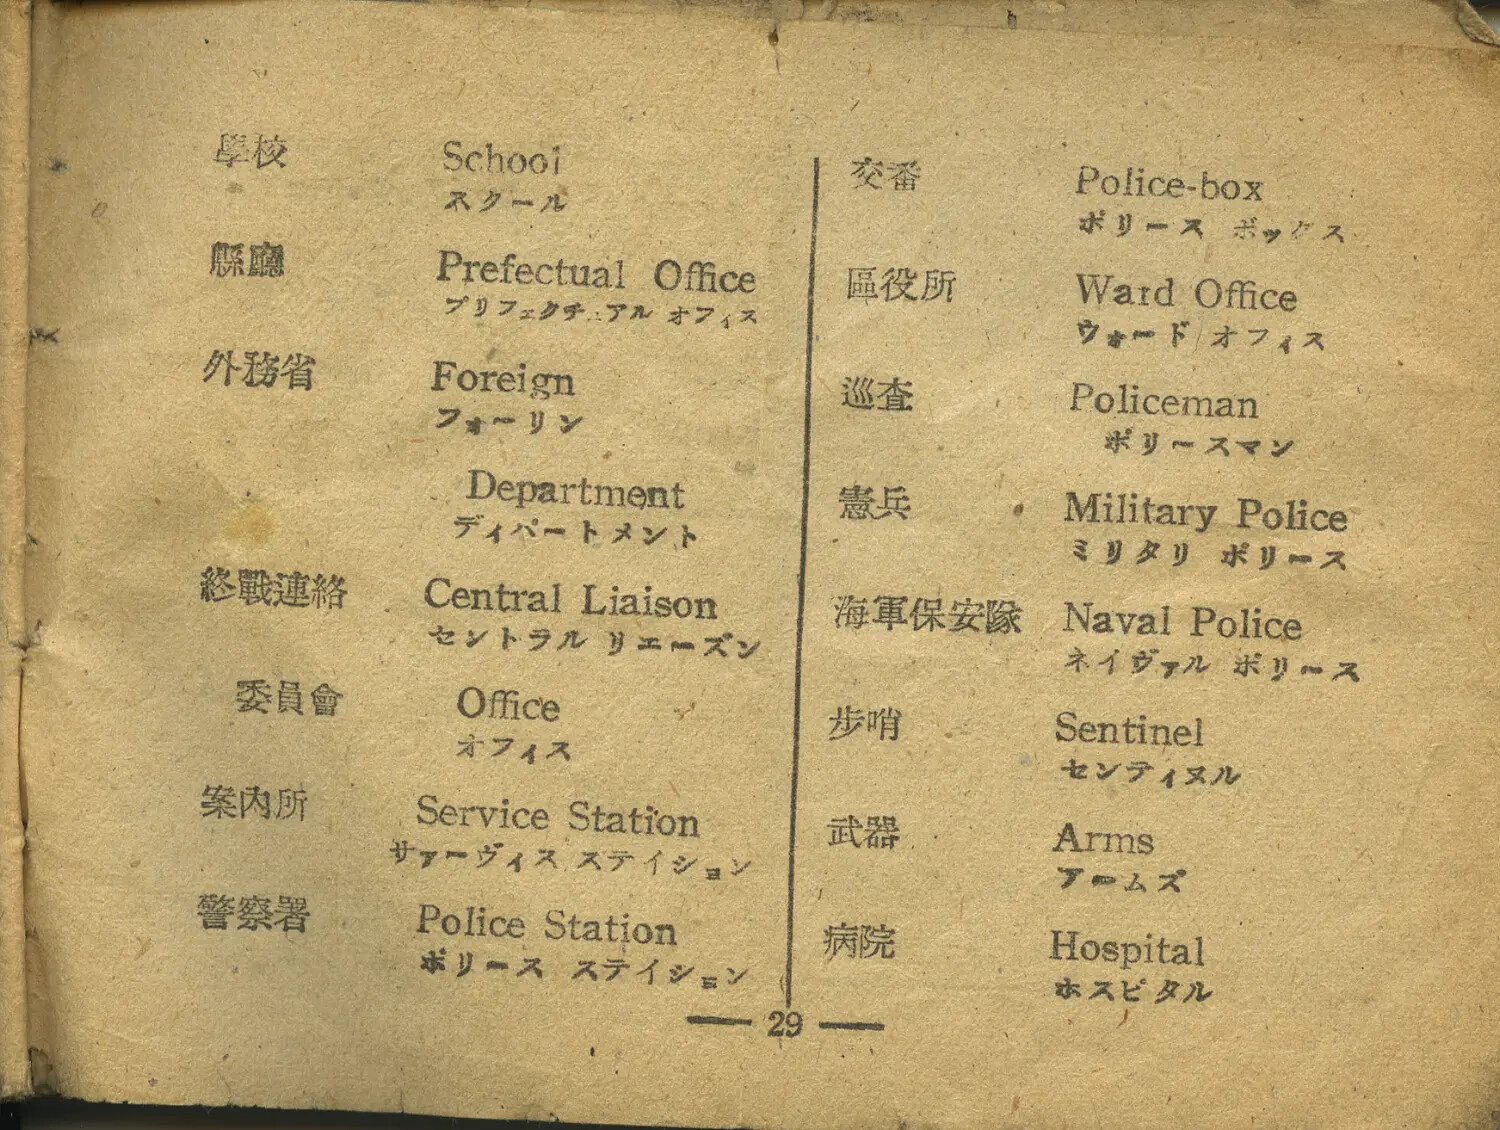 學校 School
スクール
縣廳 Prefectual Office
プリフェクチュアル オフィス
外務省 Foreign
フォーリン
Department
ディパートメント
終戰連絡 Central Liaison
セントラル リエーズン
委員會 Office
オフィス
案內所 Service Station
サァーヴィス ステイション
警察署 Police Station
ポリース ステイション
交番 Police-box
ポリース ボックス
區役所 Ward Office
ウォード オフィス
巡査 Policeman
ポリースマン
憲兵 Military Police
ミリタリ ポリース
海軍保安隊 Naval Police
ネイヴァル ポリース
步哨 Sentinel
センティヌル
武器 Arms
アームズ
病院 Hospital
ホスピタル
— 29 —